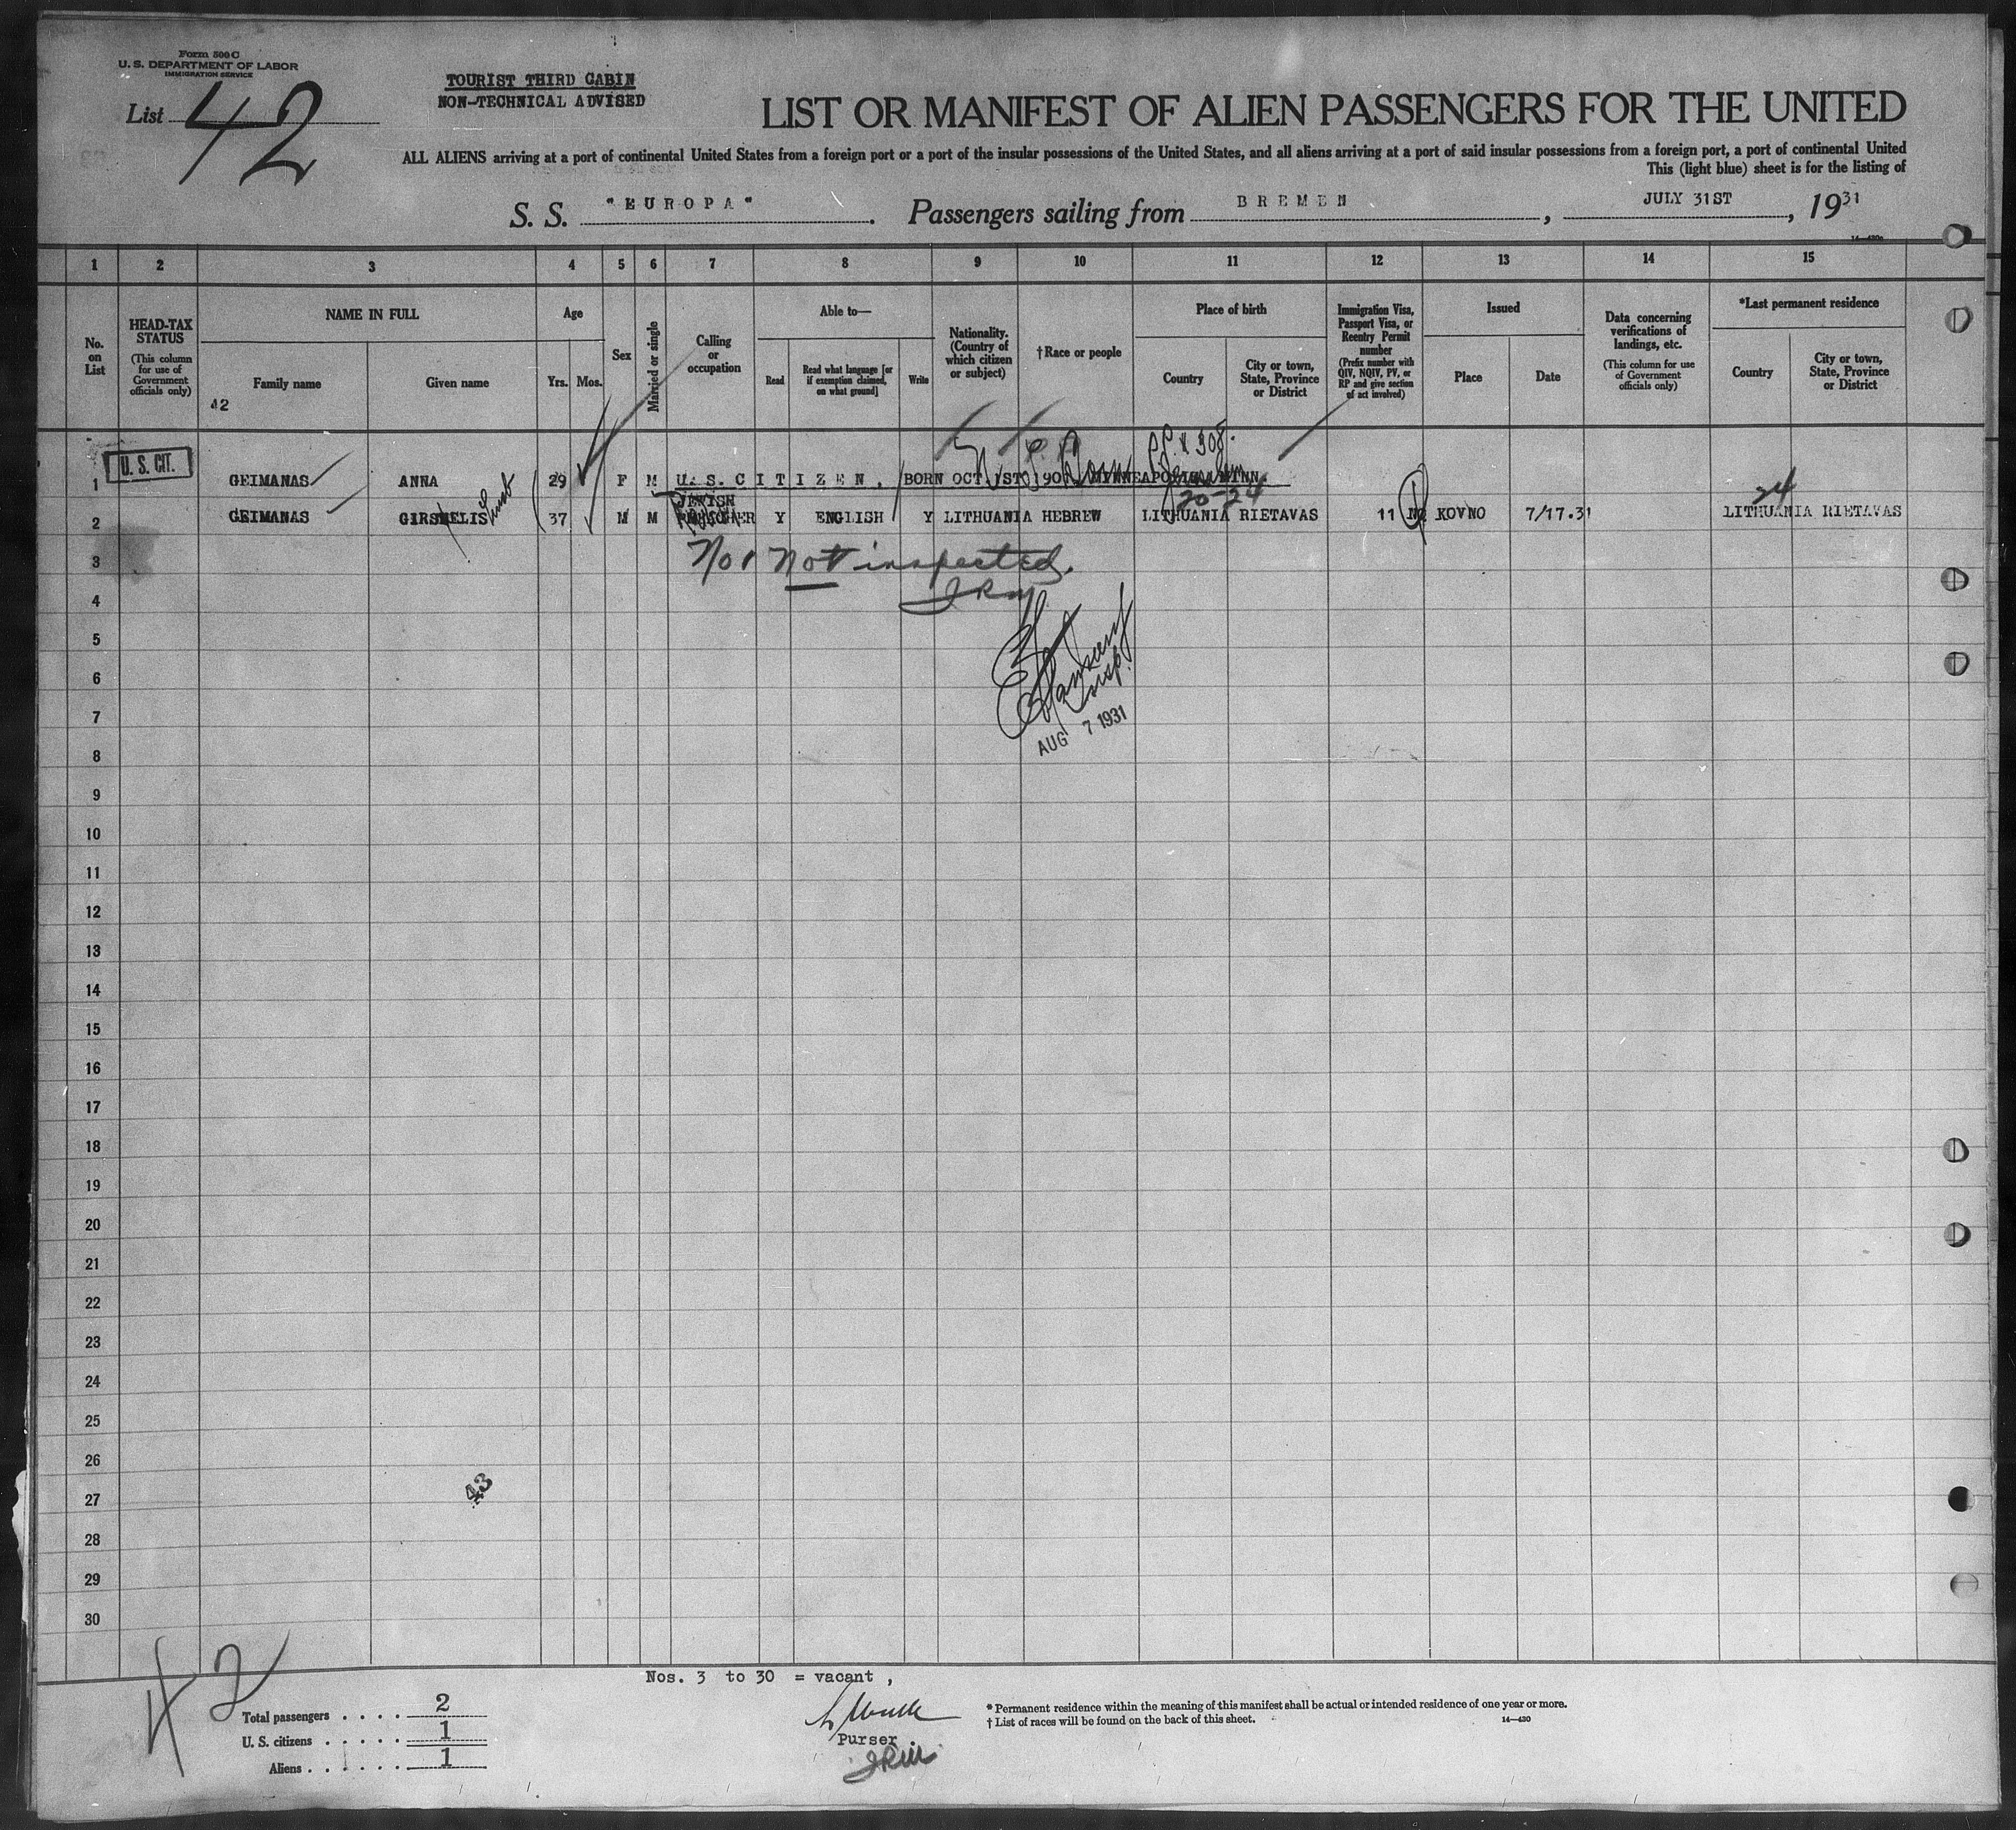 Form 500 C
U. S. DEPARTMENT OF LABOR
IMMIGRATION SERVICE
List 42
TOURIST THIRD CABIN
NON-TECHNICAL ADVISED
LIST OR MANIFEST OF ALIEN PASSENGERS FOR THE UNITED
ALL ALIENS arriving at a port of continental United States from a foreign port or a port of the insular possessions of the United States, and all aliens arriving at a port of said insular possessions from a foreign port, a port of continental United
This (light blue) sheet is for the listing of
S. S. "EUROPA". Passengers sailing from BREMEN, JULY 31ST, 1931
1 2 3 4 5 6 7 8 9 10 11 12 13 14 15
No. on List
HEAD-TAX STATUS
(This column for use of Government officials only)
NAME IN FULL
Family name
Given name
42
Age
Yrs. Mos.
Sex
Married or single
Calling or occupation
Able to—
Read
Read what language [or if exemption claimed, on what ground]
Write
Nationality. (Country of which citizen or subject)
†Race or people
Place of birth
Country
City or town, State, Province or District
Immigration Visa, Passport Visa, or Reentry Permit number
(Prefix number with QIV, NQIV, PV, or RP and give section of act involved)
Issued
Place
Date
Data concerning verifications of landings, etc.
(This column for use of Government officials only)
*Last permanent residence
Country
City or town, State, Province or District
1 U. S. CIT. GEIMANAS ANNA 29 F M U. S. CITIZEN, BORN OCT 1ST MINNEAPOLIS MINN.
20-24
24
JEWISH
2 GEIMANAS 37 M M Y ENGLISH Y LITHUANIA HEBREW LITHUANIA RIETAVAS 11 KOVNO 7/17.31 LITHUANIA RIETAVAS
3 No 1 Not inspected.
4 JRM
5
6
7
Insp.
AUG 7 1931
8
9
10
11
12
13
14
15
16
17
18
19
20
21
22
23
24
25
26
43
27
28
29
30
42
Nos. 3 to 30 = vacant,
Total passengers . . . . 2
U. S. citizens . . . . . 1
Aliens . . . . . . 1
Purser
JRM
* Permanent residence within the meaning of this manifest shall be actual or intended residence of one year or more.
† List of races will be found on the back of this sheet.
14—430